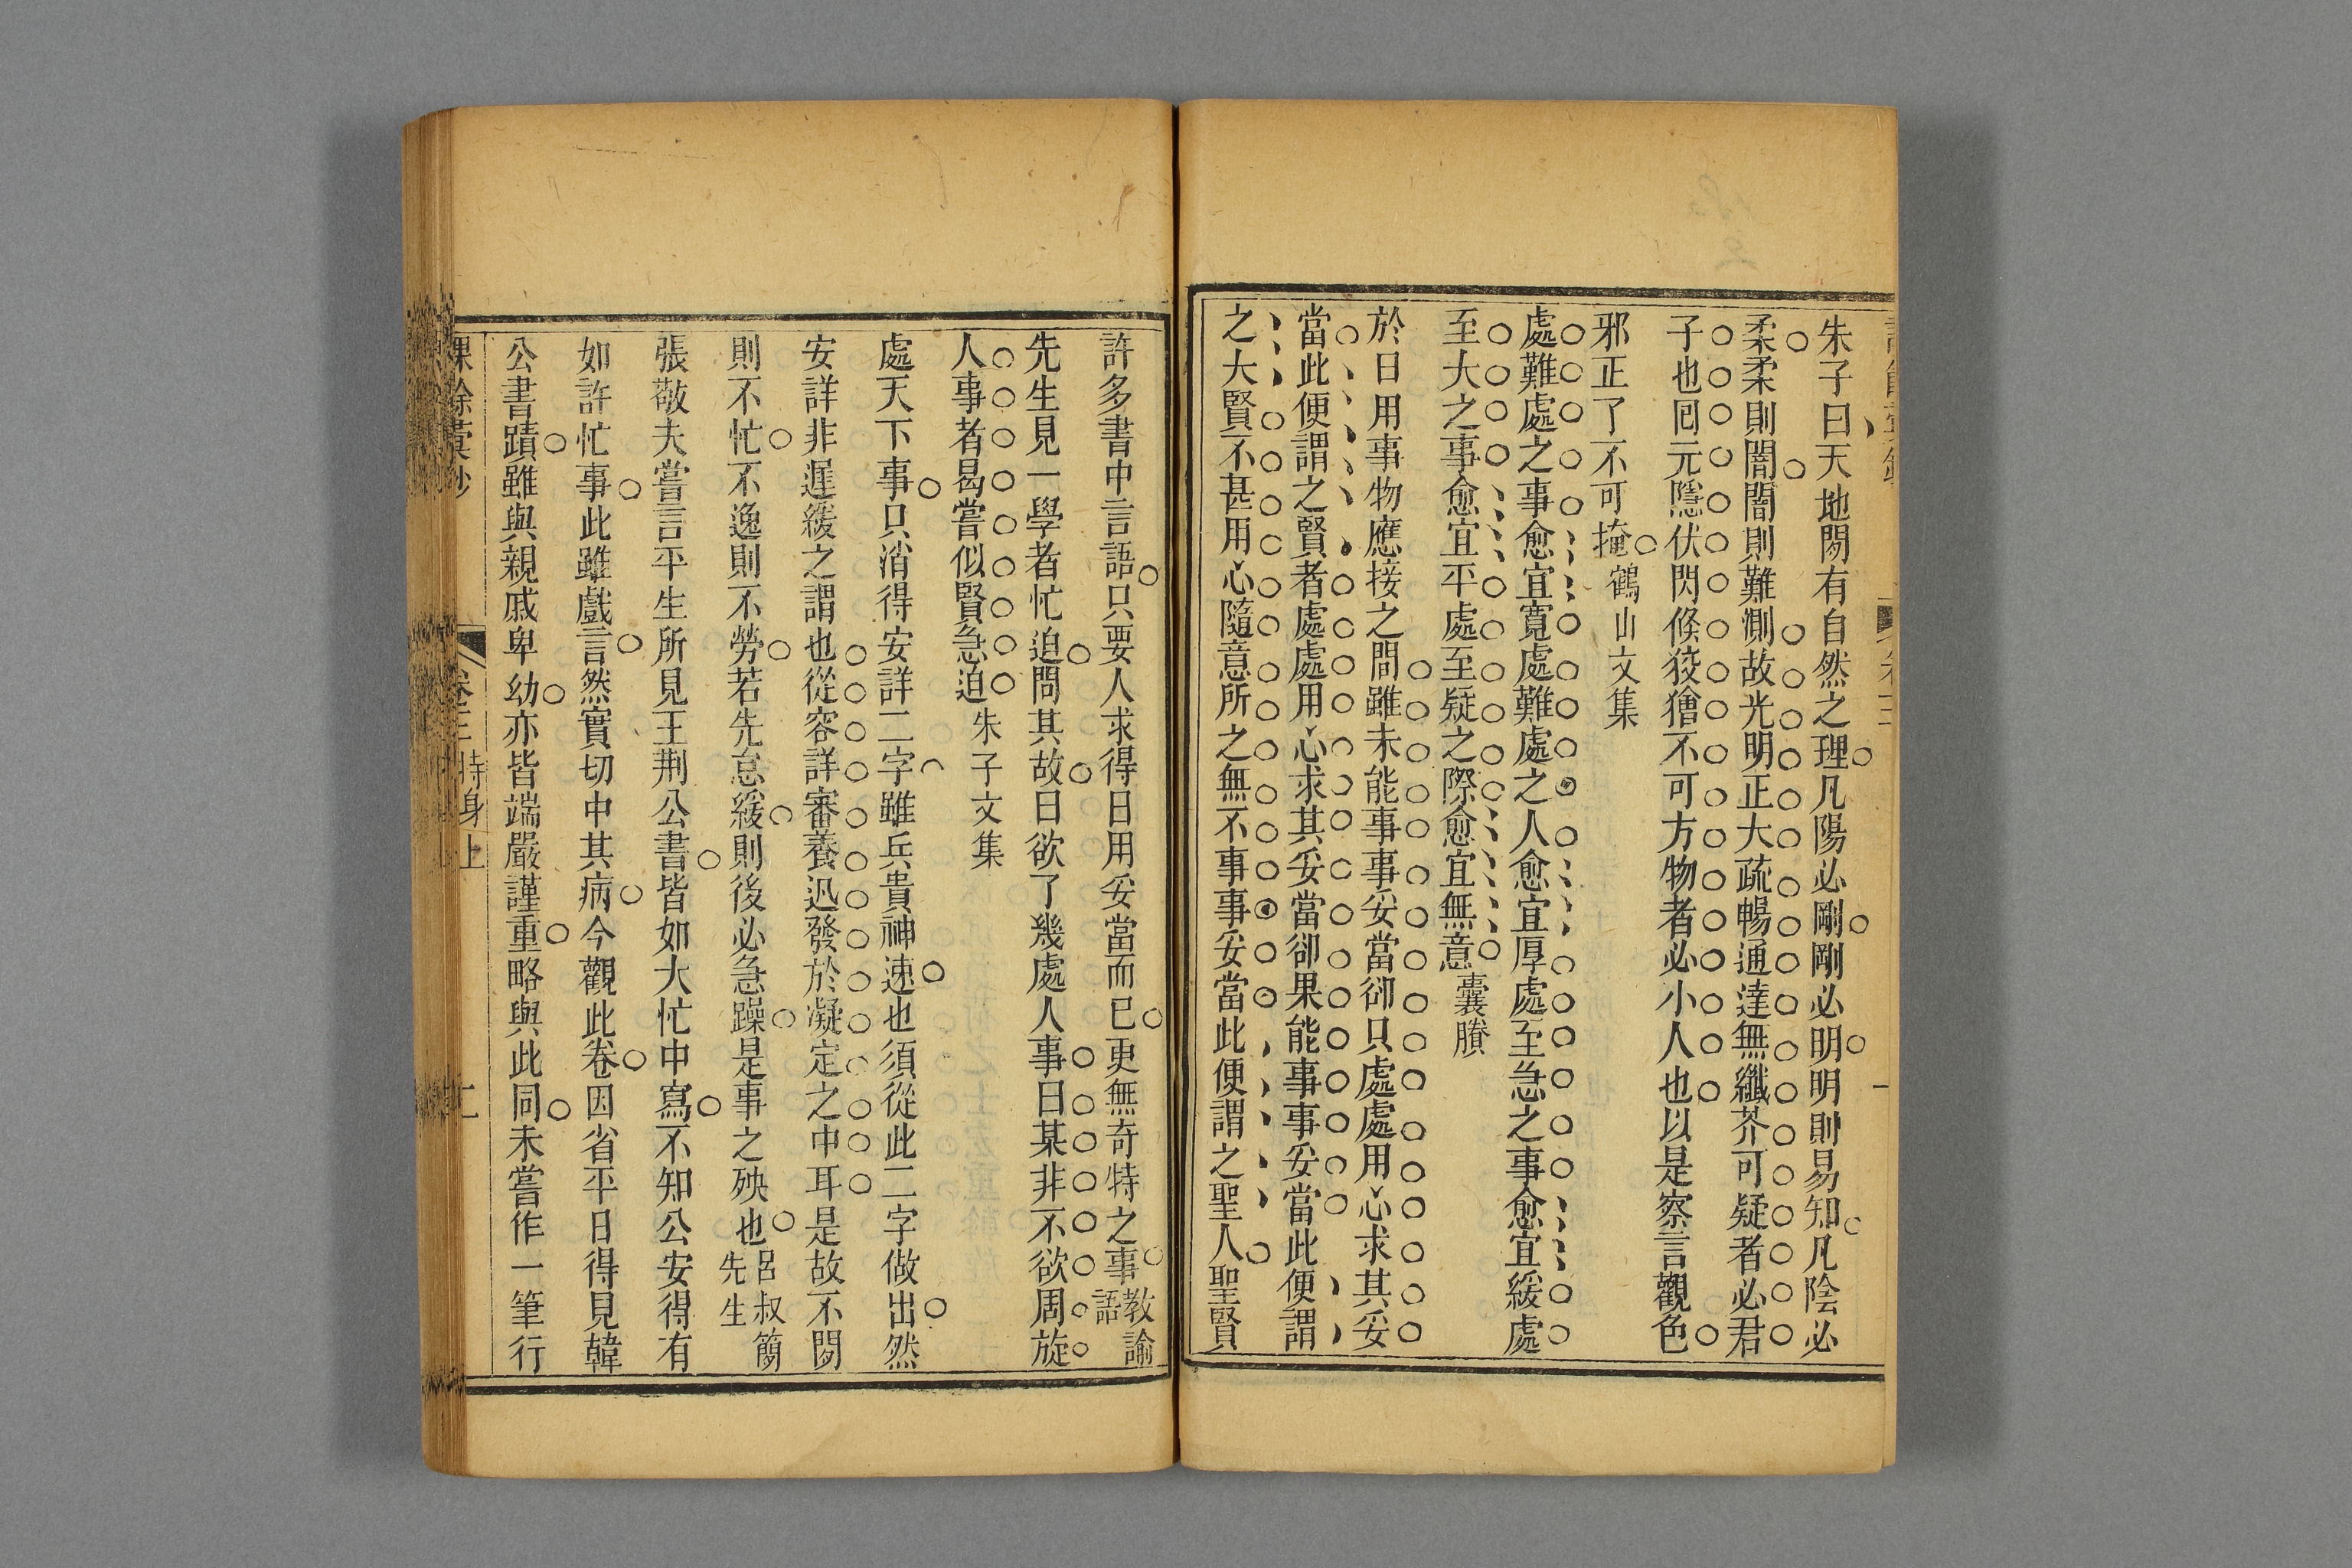 朱子曰天地閒有自然之理凡陽必剛剛必明明則易知凡陰必
柔柔則闇闇則難測故光明正大疏暢通達無纖芥可疑者必君
子也囘元隱伏閃倏狡獪不可方物者必小人也以是察言觀色
邪正了不可掩鶴山文集
處難處之事愈宜寬處難處之人愈宜厚處至急之事愈宜緩處
至大之事愈宜平處至疑之際愈宜無意囊賸
於日用事物應接之間雖未能事事妥當卻只處處用心求其妥
當此便謂之賢者處處用心求其妥當卻果能事事妥當此便謂
之大賢不甚用心隨意所之無不事事妥當此便謂之聖人聖賢
許多書中言語只要人求得日用妥當而已更無奇特之事教諭語
先生見一學者忙迫問其故曰欲了幾處人事曰某非不欲周旋
人事者曷嘗似賢急迫朱子文集
處天下事只消得安詳二字雖兵貴神速也須從此二字做出然
安詳非遲緩之謂也從容詳審養迅發於凝定之中耳是故不閒
則不忙不逸則不勞若先怠緩則後必急躁是事之殃也呂叔簡先生
張敬夫嘗言平生所見王荆公書皆如大忙中寫不知公安得有
如許忙事此雖戲言然實切中其病今觀此卷因省平日得見韓
公書蹟雖與親戚卑幼亦皆端嚴謹重略與此同未嘗作一筆行
卷三 持身上